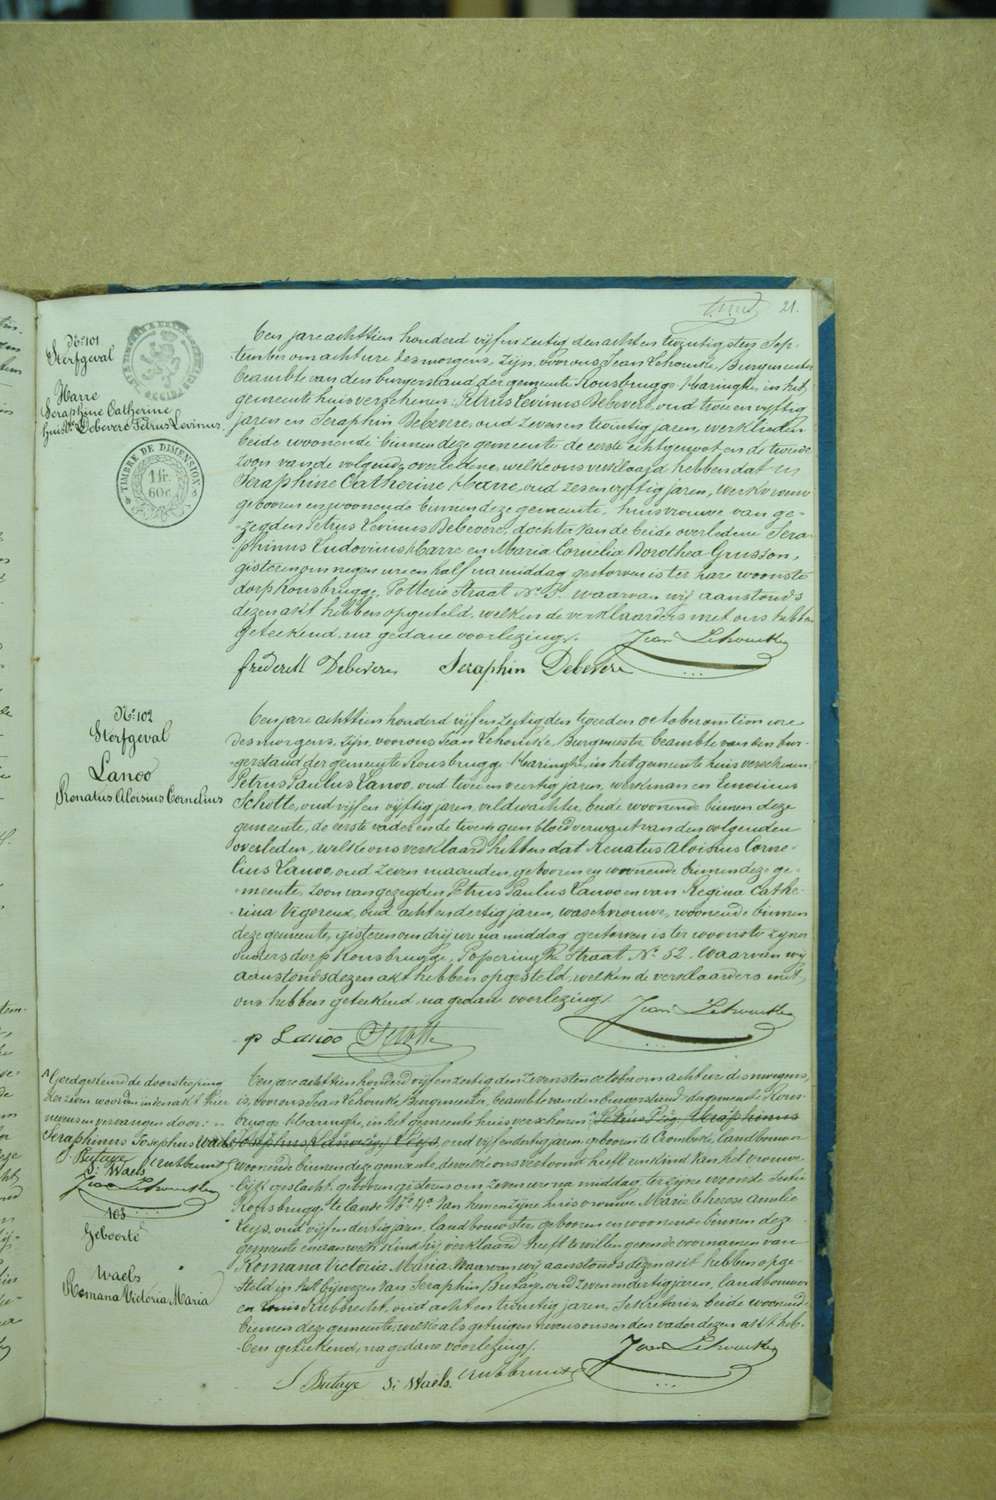 21.
Nr 101
Sterfgeval
Harre
Seraphine Catherine
huisve Debevere Petrus Levinus.
TIMBRE DE DIMENSION
1 fr.
60 c.
Ten jare achttien honderd vijf en zestig den acht en twintig sten Sep-
tember om acht ure des morgens, zijn, voor ons Jean Lehoucke, Burgemeester
beambte van den burgerstand der gemeente Rousbrugge Haringhe, in het
gemeente huis verschenen: Petrus Levinus Debevere, oud twee en vyftig
jaren en Seraphin Debevere, oud zeven en twintig jaren, werklieden
beide woonende binnen deze gemeente de eerste echtgenoot en de tweede
zoon van de volgende overledene, welke ons verklaard hebben dat
Seraphine Catherine Harre, oud zes en vyftig jaren, werkvrouw
geboren en woonende binnen deze gemeente, huisvrouwe van ge-
-zegden Petrus Levinus Debevere, dochter van de beide overledene Sera-
-phinus Ludovicus Harre en Maria Cornelia Dorothea Grusson,
gisteren om negen ure en half na middag gestorven is ter hare woonste
dorp Rousbrugge, Potterie Straat Nr waarvan wij aanstonds
dezen akt hebben opgesteld, welken de verklaarders met ons hebben
geteekend, na gedane voorlezing. Jean Lehoucke
frederik Debevere Seraphin Debevere
Nr 102
Sterfgeval
Lanoo
Renatus Aloisius Cornelius
Ten jare achttien honderd vijf en zestig den tweeden october om tien ure
des morgens, zijn, voor ons Jean Lehoucke, Burgmeester beambte van den bur-
-gerstand der gemeynte Rousbrugge Haringhe, in het gemeente huis verschenen:
Petrus Paulus Lanoo, oud twee en veertig jaren, werkman en
Schotte, oud vijf en vijftig jaren, veldwachter, beide woonende binnen deze
gemeente, de eerste vader en de tweede geen bloedverwant van den volgenden
overleden, welke ons verklaard hebben dat Renatus Aloisius Corne-
lius Lanoo, oud zeven maanden, geboren en woonende binnen deze ge-
-meente, zoon van gezegden Petrus Paulus Lanoo en van Regina Cathe-
-rina Vigoreux, oud acht en dertig jaren, waschvrouwe, woonende binnen
deze gemeente, gisteren om drij ure na middag gestorven is ter woonste zijner
ouders dorp Rousbrugge, Poperinghe Straat Nr 52. Waarvan wij
aanstonds dezen akt hebben opgesteld, welken de verklaarders met
ons hebben geteekend na gedane voorlezing. Jean Lehoucke
p Lanoo Schotte
Goedgekeurd de doorstreping
der zeven woorden in den akt hier
nevens en vervangen door:
Seraphinus Josephus Waels
S. Butaye
S: Waels
Jean Lehoucke
103
Geboorte
Waels
Romana Victoria Maria
Ten jare achttien honderd vijf en zestig den zevensten october om acht ure des morgens,
is, voor ons Jean Lehoucke Burgemeester, beambte van den burgerstand der gemeente Rous-
brugge Haringhe, in het gemeente huis verschenen:
oud vijf en dertig jaren, geboren te Crombeke, landbouwer
woonende binnen deze gemeente, dewelke ons vertoond heeft een kind van het vrouwe-
-lijk geslacht, geboren gisteren om zeven ure na middag, ter zijne woonste
Rousbrugge te lande Nr 4a van hem en zijne huisvrouwe Marie Therese Amelie
Leys, oud vijf en dertig jaren, landbouwster geboren en woonende binnen deze
gemeente en aan welk kind hij verklaard heeft te willen geven de voornamen van
Romana Victoria Maria. Waarvan wij aanstonds dezen akt hebben opge-
-steld in het bijwezen van Seraphin Butaye, oud zeven en dertig jaren, landbouwer
en Louis Rubbrecht, oud acht en twintig jaren, Sekretaris, beide woonende
binnen deze gemeente, welke als getuigen nevens ons en den vader dezen akt heb-
-ben geteekend, na gedane voorlezing. Jean Lehoucke
S Butaye S: Waels.